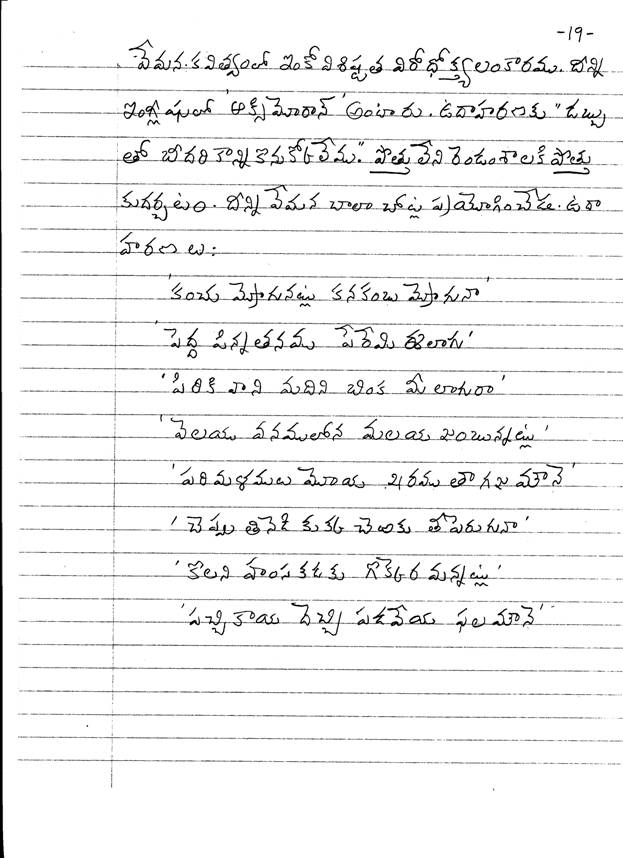 -19-
వేమన కవిత్వంలో ఇంకో విశిష్టత విరోధోక్త్యలంకారము. దీన్ని
ఇంగ్లీషులో 'ఆక్సిమోరాన్' అంటారు. ఉదాహరణకు "డబ్బు
తో బీదరికాన్ని కొనుకోలేము." పొత్తు లేని రెండంశాలకి పొత్తు
కుదర్చటం. దీన్ని వేమన చాలా చోట్ల ప్రయోగించేడు. ఉదా
హరణలు:
'కంచు మ్రోగునట్లు కనకంబు మ్రోగునా'
'పెద్ద పిన్నతనము పేరేమి ఈలాగు'
'పిరికి వాని మదిని బింక మీలాగురా'
'వెలయు వనములోన మలయజంబున్నట్లు'
'పరిమళములు మోయ ఖరము తా గజమౌనె'
'చెప్పు తినెడి కుక్క చెఱకు తీపెరుగునా'
'కొలని హంసకడకు గొక్కెర మన్నట్లు'
'పచ్చి కాయ దెచ్చి పడవేయ ఫలమౌనె'